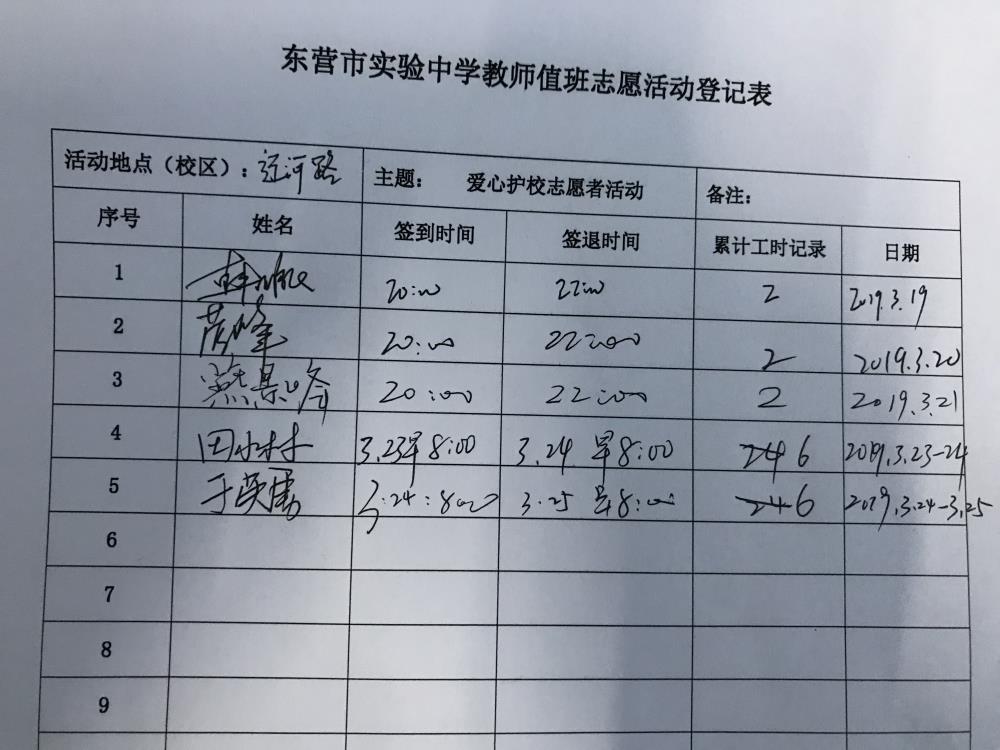 东营市实验中学教师值班志愿活动登记表
活动地点（校区）：辽河路 主题： 爱心护校志愿者活动 备注：
序号 姓名 签到时间 签退时间 累计工时记录 日期
1 20:00 22:00 2 2019.3.19
2 20:00 22:00 2 2019.3.20
3 燕景峰 20:00 22:00 2 2019.3.21
4 田林林 3.23早8:00 3.24 早8:00 24 6 2019.3.23-24
5 于英勇 3.24:800 3.25 早8:00 24 6 2019.3.24-3.25
6
7
8
9